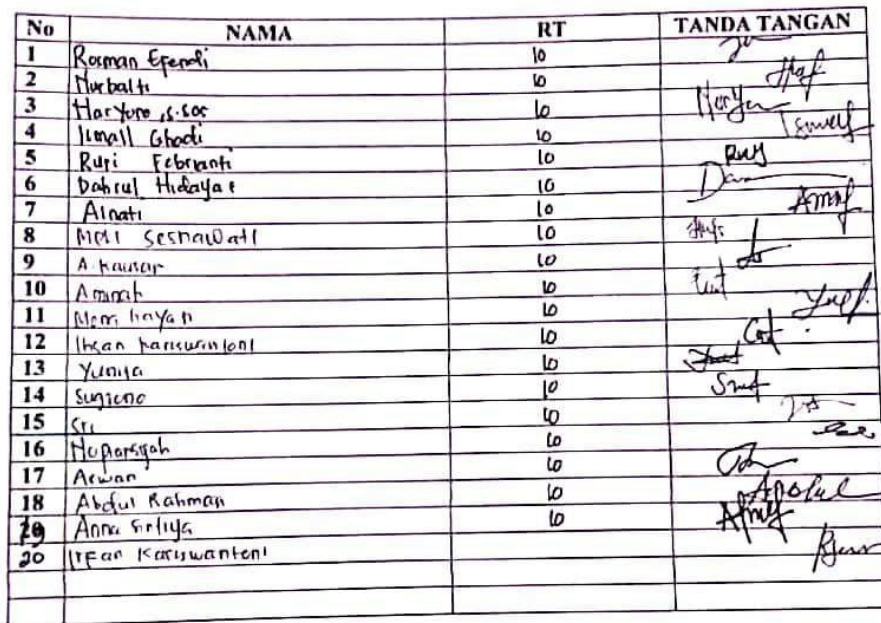 No NAMA RT TANDA TANGAN
1 Rosman Efendi 10
2 Nurbaiti 10
3 Haryono, S.Sos 10
4 Ismail Ghadi 10
5 Rupi Febrianti 10
6 Dahrul Hidayat 10
7 Alnati 10
8 Meli Sesnawati 10
9 A. Kausar 10
10 Aminah 10
11 Meni hayati 10
12 Ihsan Kariswantoni 10
13 Yunita 10
14 Sugiono 10
15 Sri 10
16 10
17 Aswan 10
18 Abdul Rahman 10
19 Anna 10
20 Irfan Kariswantoni